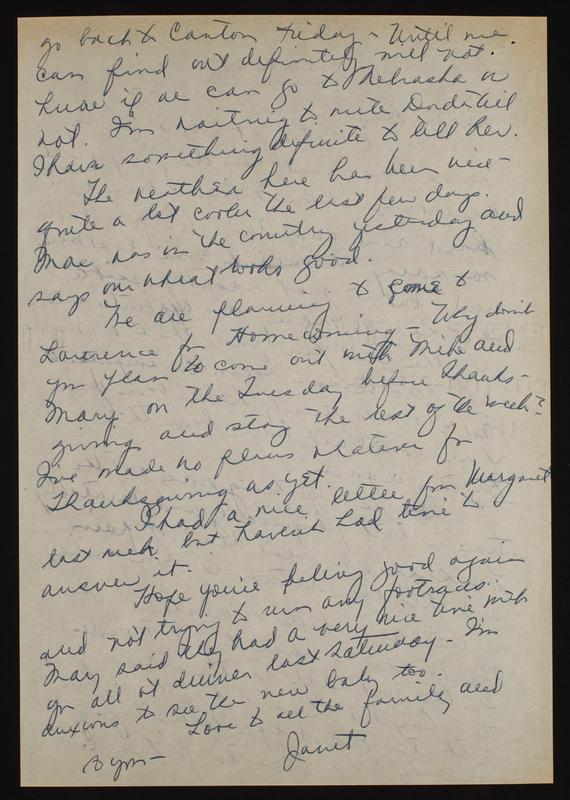 go back to Canton Friday - Until we
can find out definitely will not
know if we can go to Nebraska or
not. I'm waiting to write Dorda till
I have something definite to tell her.
The weather here has been nice -
quite a bit cooler the last few days.
Max was in the country yesterday and
says our wheat looks good.
We are planning to come to
Lawrence for Homecoming - Why don't
you plan to come out with Mike and
Mary on the Tuesday before Thanks-
giving and stay the rest of the week?
I've made no plans whatever for
Thanksgiving as yet.
I had a nice letter from Margaret
last week but haven't had time to
answer it.
Hope you're feeling good again
and not trying to run any footraces.
Mary said they had a very nice time with
you all at dinner last Saturday - I'm
anxious to see the new baby too.
Love to all the family and
to you -
Janet